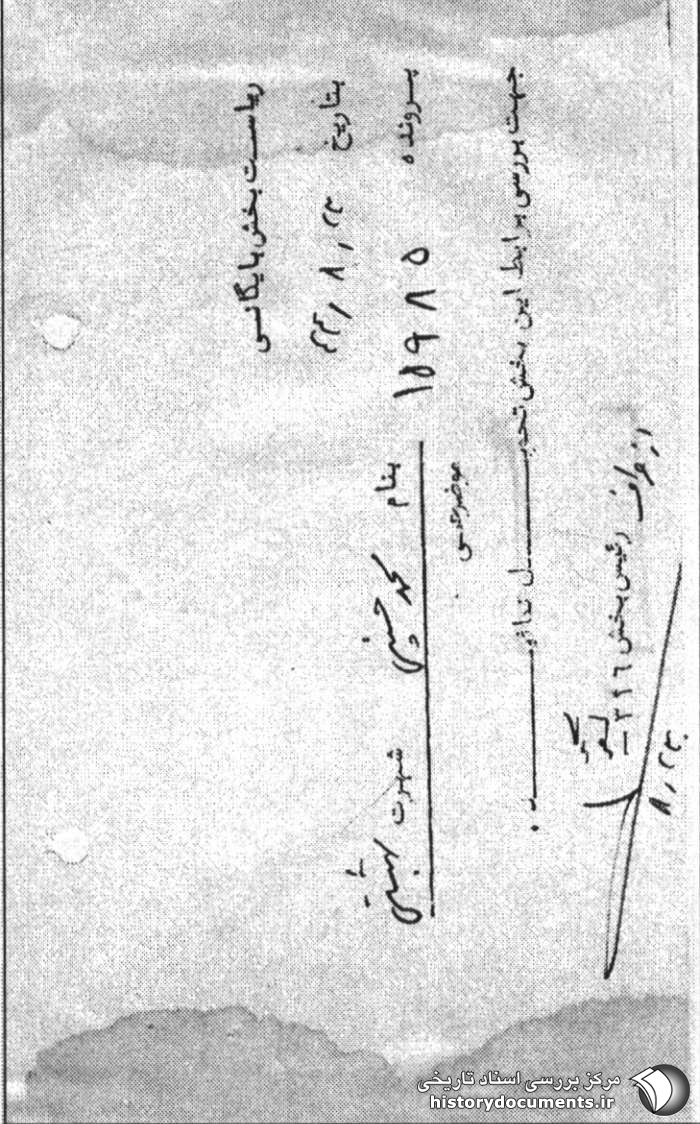 ریاست بخش بایگانی
بتاریخ ۲۳ر۸ر۴۴
پرونده ۱۵۹۸۵ بنام محمد حسینی شهرت بهشتی
جهت بررسی برابط این بخش تحویل نمائید.
رئیس بخش ۳۱۶
۲۳ر۸
مرکز بررسی اسناد تاریخی
historydocuments.ir